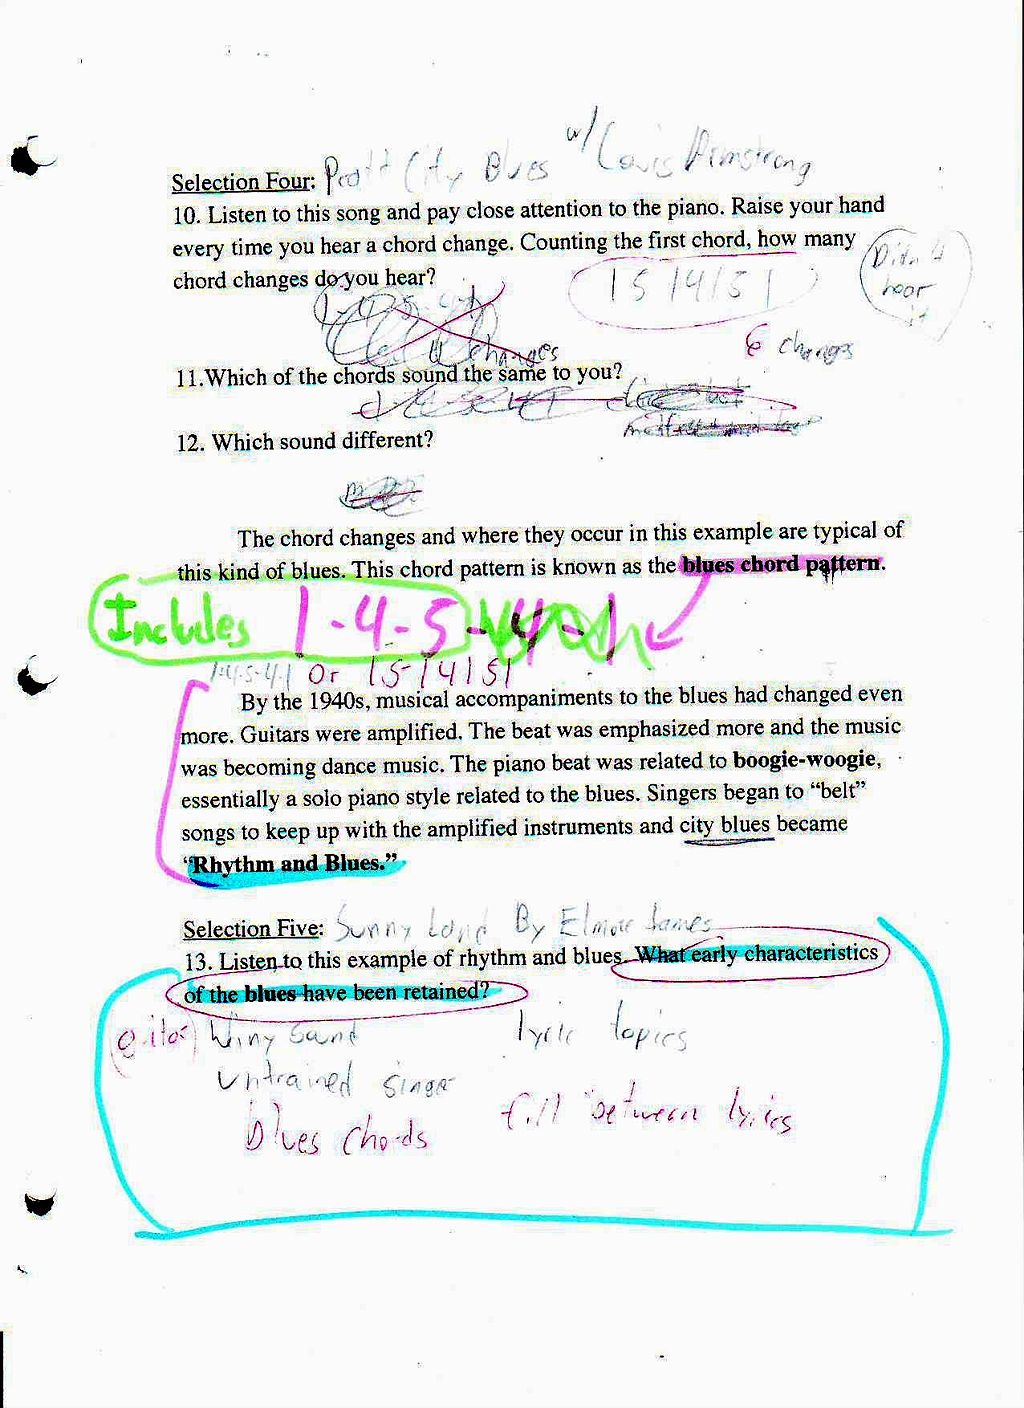 w/ Louis Armstrong
Selection Four: Pratt City Blues
10. Listen to this song and pay close attention to the piano. Raise your hand
every time you hear a chord change. Counting the first chord, how many
chord changes do you hear?
1 5 1 4 1 5 1
Didn't
hear
it
changes
6 changes
11.Which of the chords sound the same to you?
12. Which sound different?
The chord changes and where they occur in this example are typical of
this kind of blues. This chord pattern is known as the blues chord pattern.
Includes 1-4-5-4-1
1-4-5-4-1 Or 15-14151
By the 1940s, musical accompaniments to the blues had changed even
more. Guitars were amplified. The beat was emphasized more and the music
was becoming dance music. The piano beat was related to boogie-woogie,
essentially a solo piano style related to the blues. Singers began to “belt”
songs to keep up with the amplified instruments and city blues became
“Rhythm and Blues.”
Selection Five: Sunny Land By Elmore James
13. Listen to this example of rhythm and blues. What early characteristics
of the blues have been retained?
Winy Sound lyric topics
untrained singer
blues chords fill between lyrics